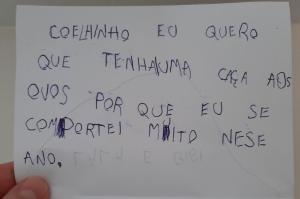 COELHINHO EU QUERO
QUE TENHAUMA CAÇA AOS
OVOS POR QUE EU SE
COMPORTEI MUITO NESE
ANO.